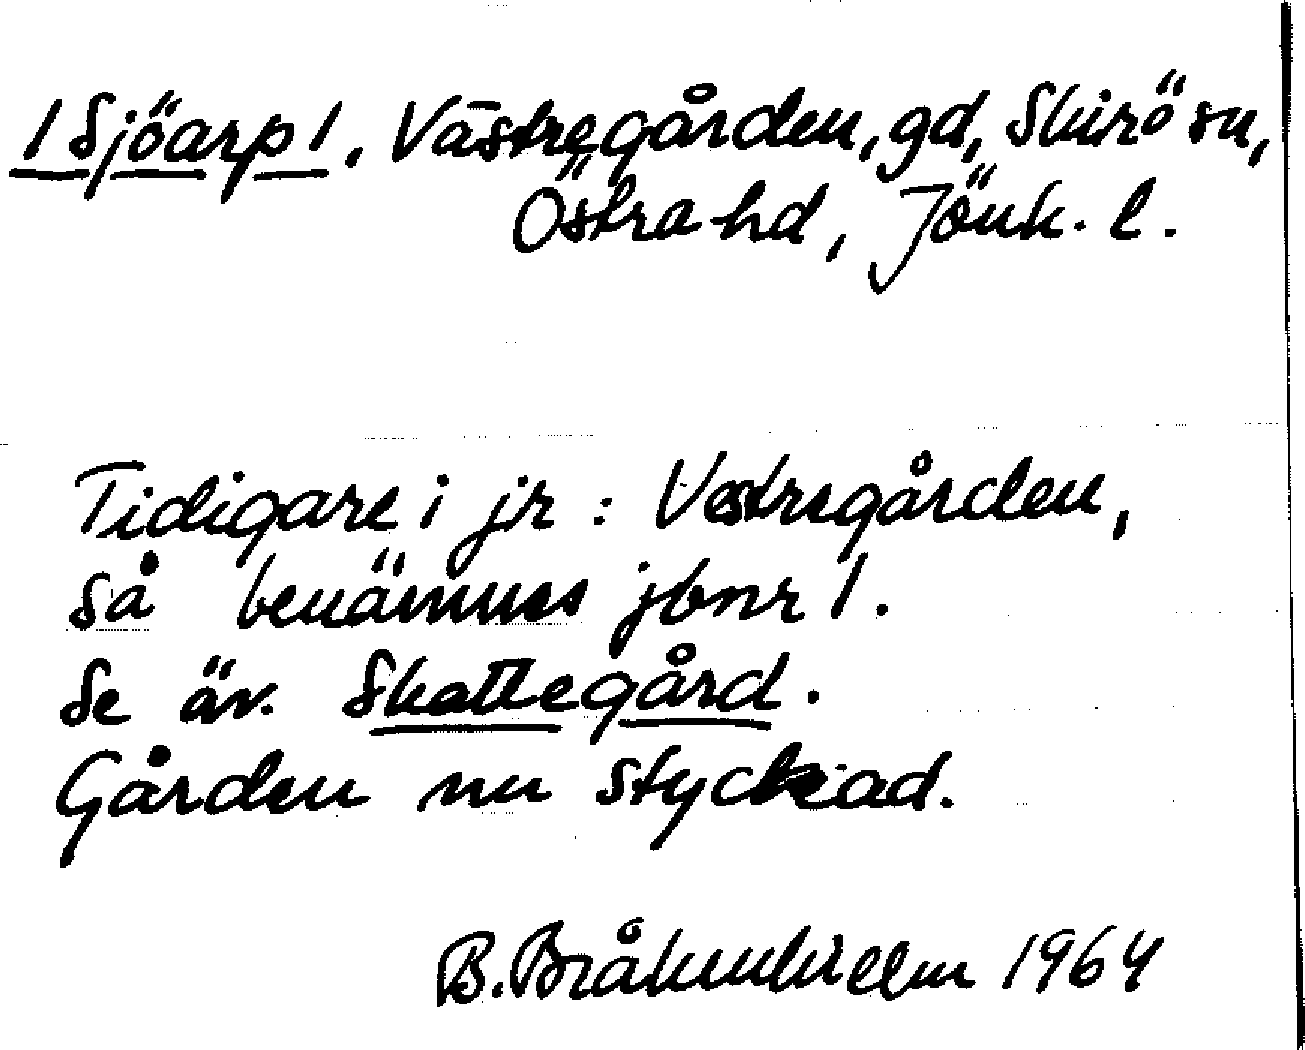 /Sjöarp/, Västregården, gd, Skirö sn,
Östra hd, Jönk. l.
Tidigare i jr : Vestregården,
så benämnes jbnr 1.
Se äv. Skattegård.
Gården nu styckad.
B. Bråkenhielm 1964